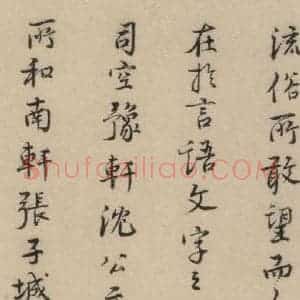 流俗所敢望而
在於言語文字之
司空豫軒沈公
所和南軒張子城
shufaziliao.COM